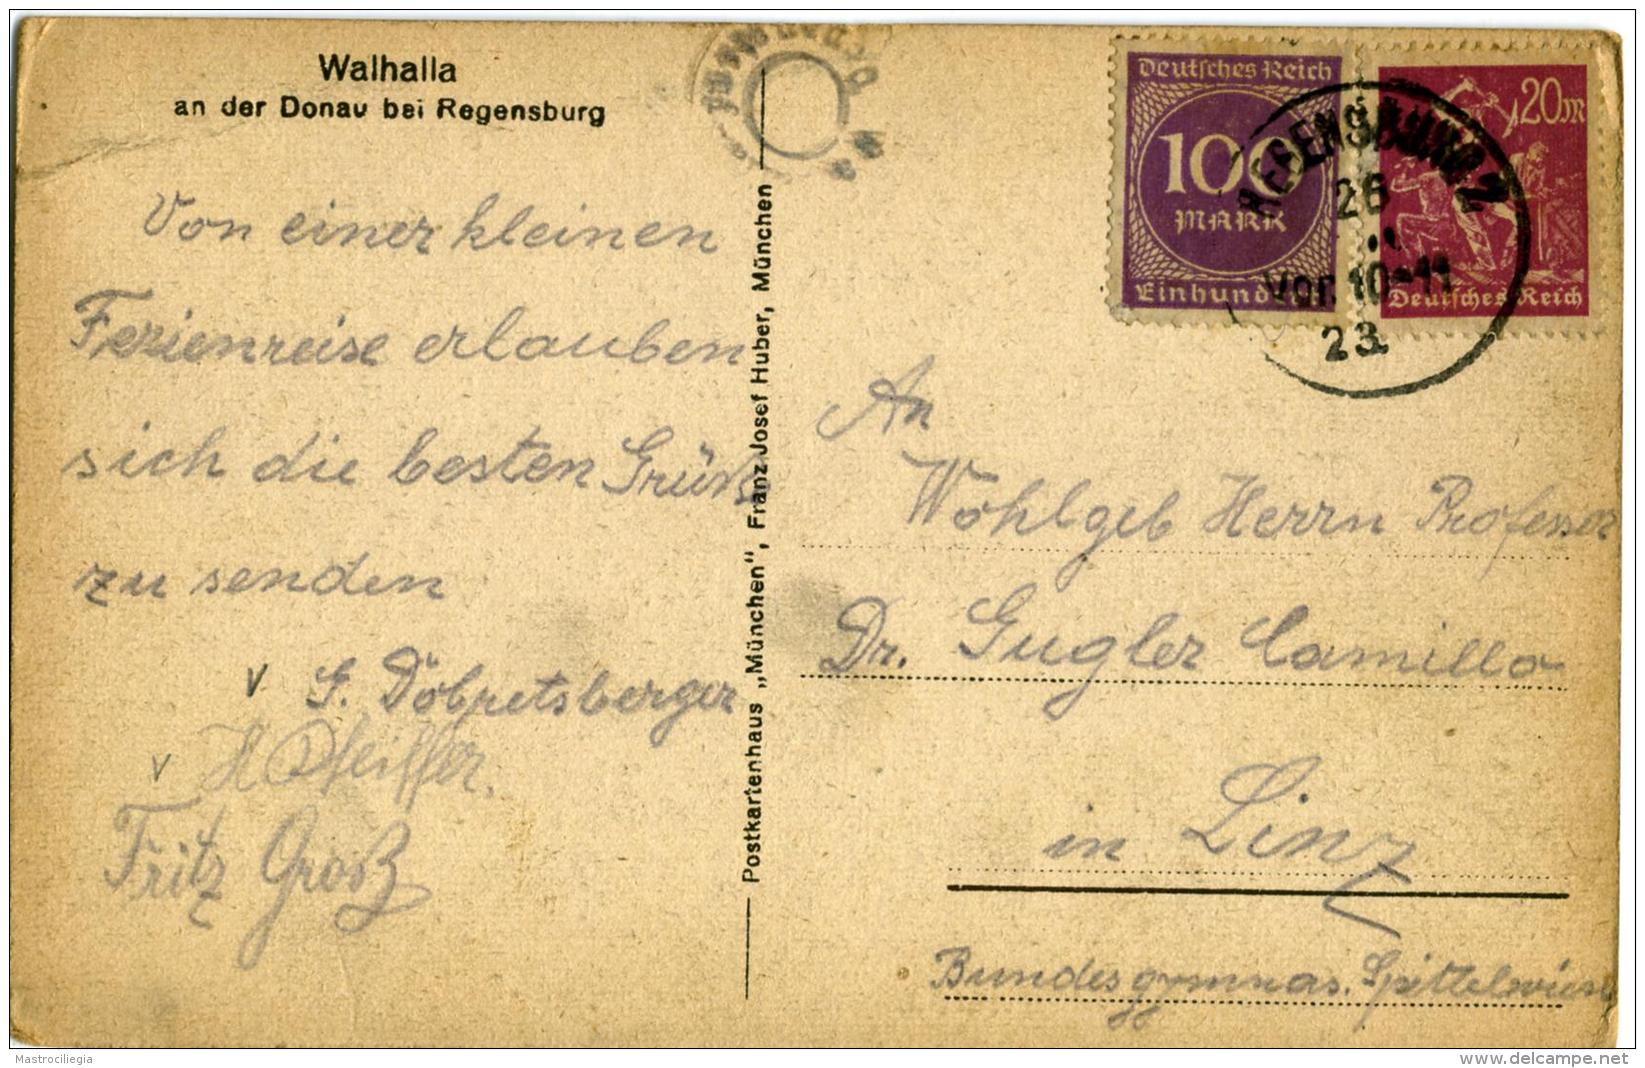 Walhalla
an der Donau bei Regensburg
Von einer kleinen
Ferienreise erlauben
sich die besten Grüße
zu senden
V G. Döbretsberger
V H Pfeiffer.
Fritz Groß
Postkartenhaus „München", Franz Josef Huber, München
Deutsches Reich
100
MARK
Einhundert
20M
Deutsches Reich
REGENSBURG 2
26
Vor. 10-11
23.
An
Wohlgeb Herrn Professor
Dr. Gugler Camillo
in Linz
Bundesgymnas. Spittelwiese
Mastrociliegia
www.delcampe.net